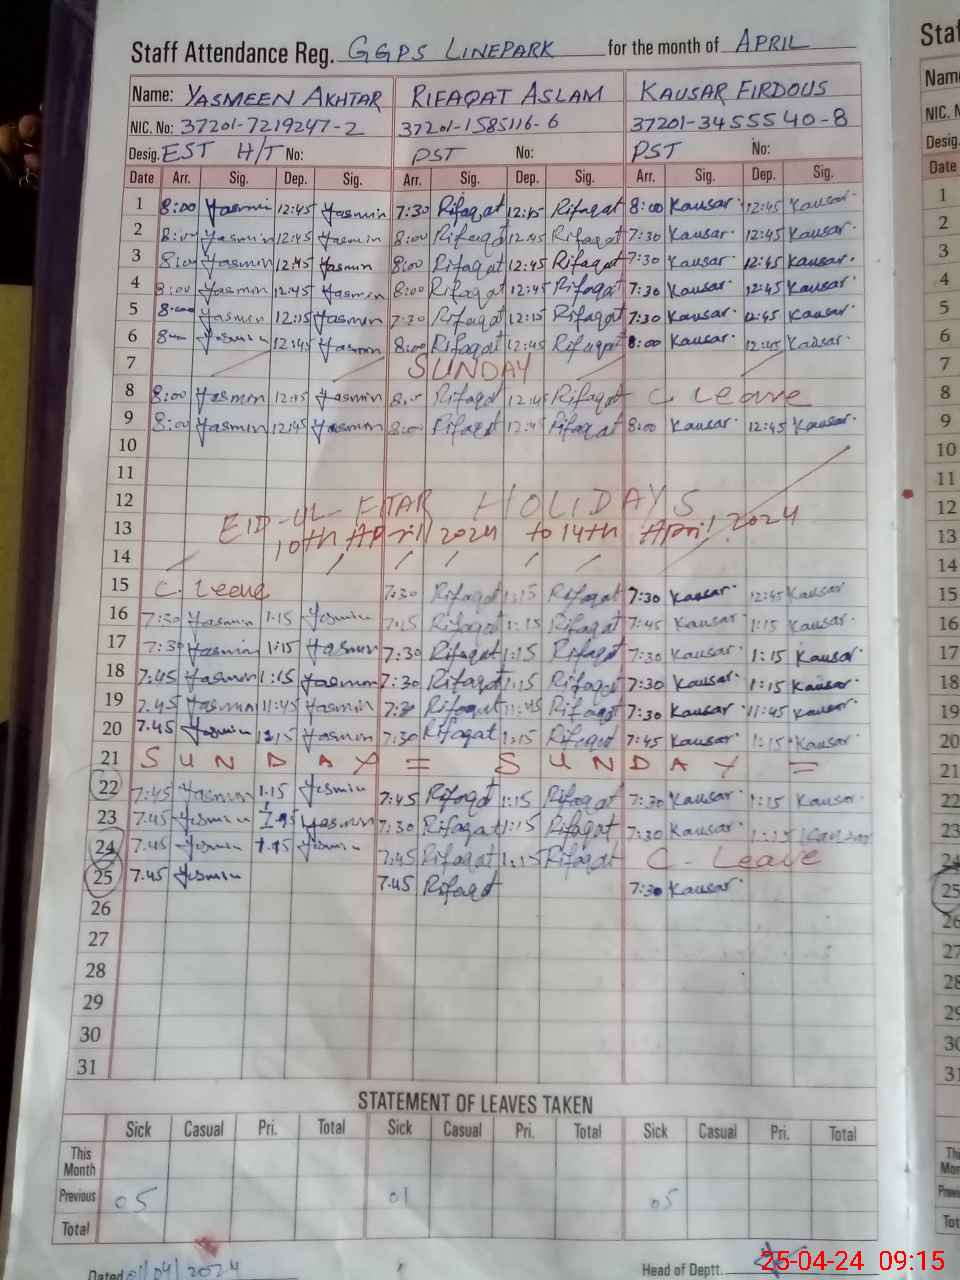 Staff Attendance Reg. GGPS LINEPARK for the month of APRIL
Name: YASMEEN AKHTAR RIFAQAT ASLAM KAUSAR FIRDOUS
NIC. No: 37201-7219247-2 37201-1585116-6 37201-3455540-8
Desig. EST H/T No: PST No: PST No:
Date Arr. Sig. Dep. Sig. Arr. Sig. Dep. Sig. Arr. Sig. Dep. Sig.
1 8:00 Yasmin 12:45 Yasmin 7:30 Rifaqat 12:45 Rifaqat 8:00 Kausar 12:45 Kausar
2 8:00 Yasmin 12:45 Yasmin 8:00 Rifaqat 12:45 Rifaqat 7:30 Kausar 12:45 Kausar
3 8:00 Yasmin 12:45 Yasmin 8:00 Rifaqat 12:45 Rifaqat 7:30 Kausar 12:45 Kausar
4 8:00 Yasmin 12:45 Yasmin 8:00 Rifaqat 12:45 Rifaqat 7:30 Kausar 12:45 Kausar
5 8:00 Yasmin 12:15 Yasmin 7:30 Rifaqat 12:15 Rifaqat 7:30 Kausar 12:45 Kausar
6 8:00 Yasmin 12:45 Yasmin 8:00 Rifaqat 12:45 Rifaqat 8:00 Kausar 12:45 Kausar
7 SUNDAY
8 8:00 Yasmin 12:15 Yasmin 8:00 Rifaqat 12:45 Rifaqat C Leave
9 8:00 Yasmin 12:45 Yasmin 8:00 Rifaqat 12:45 Rifaqat 8:00 Kausar 12:45 Kausar
10
11
12 EID-UL-FITAR HOLIDAYS
13 10th April 2024 to 14th April 2024
14
15 C. Leave 7:30 Rifaqat 1:15 Rifaqat 7:30 Kausar 12:45 Kausar
16 7:30 Yasmin 1:15 Yasmin 7:15 Rifaqat 1:15 Rifaqat 7:45 Kausar 1:15 Kausar
17 7:30 Yasmin 1:15 Yasmin 7:30 Rifaqat 1:15 Rifaqat 7:30 Kausar 1:15 Kausar
18 7:45 Yasmin 1:15 Yasmin 7:30 Rifaqat 1:15 Rifaqat 7:30 Kausar 1:15 Kausar
19 7.45 Yasmin 11:45 Yasmin 7:30 Rifaqat 11:45 Rifaqat 7:30 Kausar 11:45 Kausar
20 7.45 Yasmin 1:15 Yasmin 7:30 Rifaqat 1:15 Rifaqat 7:45 Kausar 1:15 Kausar
21 SUNDAY = SUNDAY =
22 7:45 Yasmin 1:15 Yasmin 7:45 Rifaqat 1:15 Rifaqat 7:30 Kausar 1:15 Kausar
23 7.45 Yasmin Yasmin 7:30 Rifaqat 1:15 Rifaqat 7:30 Kausar 1:15 Kausar
24 7.45 Yasmin Yasmin 7:45 Rifaqat 1:15 Rifaqat C- Leave
25 7.45 Yasmin 7.45 Rifaqat 7:30 Kausar
26
27
28
29
30
31
STATEMENT OF LEAVES TAKEN
Sick Casual Pri. Total Sick Casual Pri. Total Sick Casual Pri. Total
This Month
Previous 05 01 05
Total
Dated 01/04/2024 Head of Deptt.
25-04-24 09:15